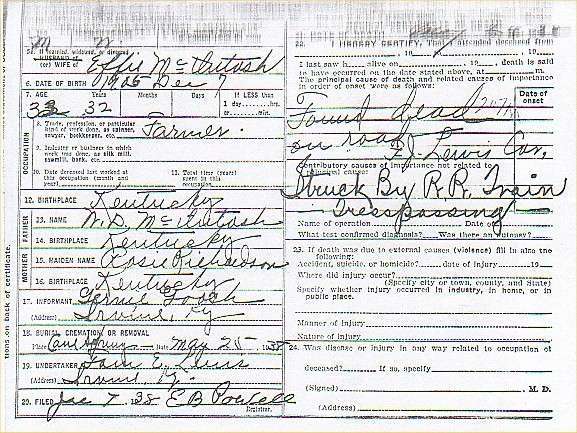 M W
5a. If married, widowed, or divorced
HUSBAND of
(or) WIFE of Effie McIntosh
6. DATE OF BIRTH 1905 Dec 7
7. AGE Years Months Days If LESS than
1 day, hrs.
or min.
32 5
8. Trade, profession, or particular
kind of work done, as spinner,
sawyer, bookkeeper, etc. Farmer
9. Industry or business in which
work was done, as silk mill,
sawmill, bank, etc.
10. Date deceased last worked at
this occupation (month and
year)
11. Total time (years)
spent in this
occupation
OCCUPATION
12. BIRTHPLACE Kentucky
FATHER
13. NAME W. S. McIntosh
14. BIRTHPLACE Kentucky
MOTHER
15. MAIDEN NAME Rosie Richardson
16. BIRTHPLACE Kentucky
17. INFORMANT
(Address) Irvine, Ky
18. BURIAL, CREMATION OR REMOVAL
Place Date May 25 1938
19. UNDERTAKER Lewis
(Address) Irvine, Ky.
20. FILED 7 38 E B Powell
Registrar.
tions on back of certificate.
22. I HEREBY CERTIFY, That I attended deceased from
I last saw h alive on 19 , death is said
to have occurred on the date stated above, at m.
The principal cause of death and related causes of importance
in order of onset were as follows:
Date of
onset
Found dead
on road
F. J. Lewis Cor.
Contributory causes of importance not related to
principal cause:
Struck By R.R. Train
Tresspassing
Name of operation Date of
What test confirmed diagnosis? Was there an autopsy?
23. If death was due to external causes (violence) fill in also the
following:
Accident, suicide, or homicide? date of injury 19
Where did injury occur?
(Specify city or town, county, and State)
Specify whether injury occurred in industry, in home, or in
public place.
Manner of injury
Nature of injury
24. Was disease or injury in any way related to occupation of
deceased? If so, specify
(Signed) M. D.
(Address)